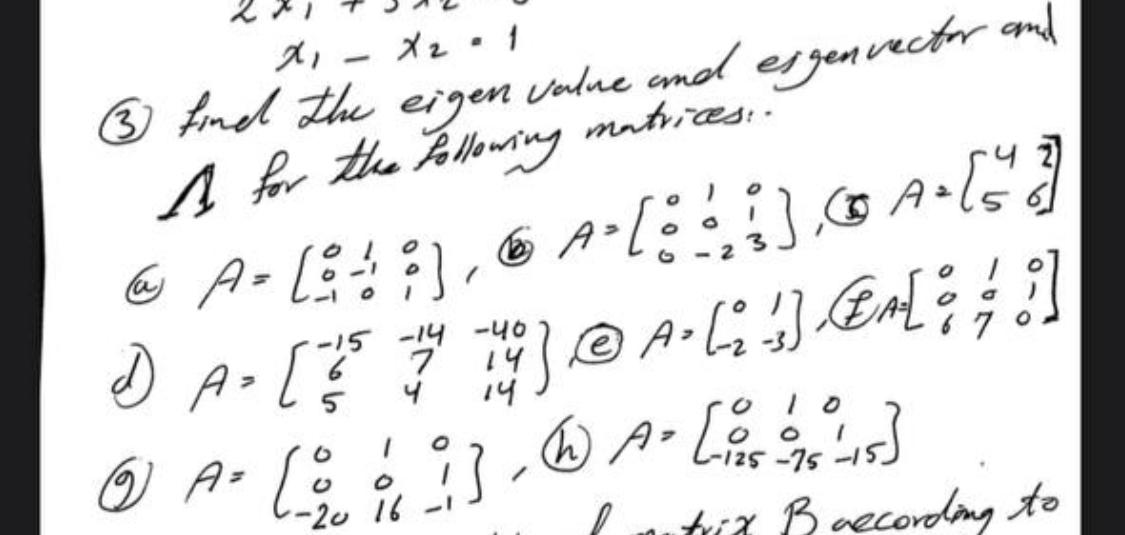 x1 - x2 = 1
③ find the eigen value and eigenvector and
Λ for the following matrices:.
ⓐ A = [0 1 0; 0 -1 0; -1 0 1], ⓑ A = [0 1 0; 0 0 1; 0 -2 3], ⓒ A = [4 2; 5 6]
d) A = [-15 -14 -40; 6 7 14; 5 4 14] ⓔ A = [0 1; -2 -3], ⓕ A = [0 1 0; 0 0 1; 6 7 0]
ⓖ A = [0 1 0; 0 0 1; -20 16 -1], ⓗ A = [0 1 0; 0 0 1; -125 -75 -15]
matrix B according to